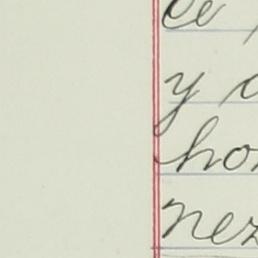 ce
y a
hon
nez